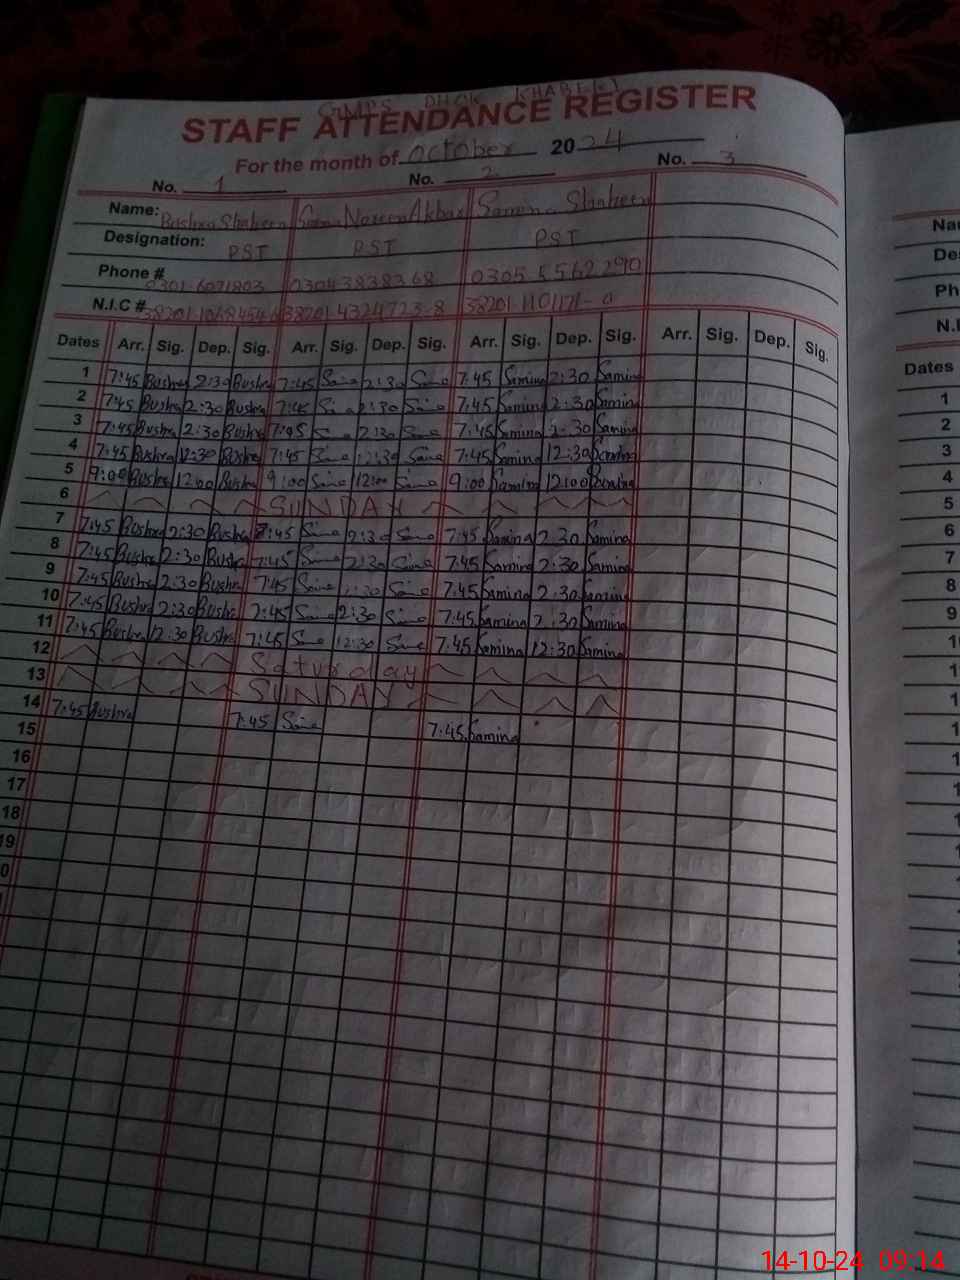 GMPS DHOK KHABE(
STAFF ATTENDANCE REGISTER
For the month of October 2024
No. 1 No. 2 No. 3
Name: Bushra Shaheen Nareen Akbar Samina Shaheen
Designation: PST PST PST
Phone # 0301-6071803 0304 3838368 0305 5562290
N.I.C #
Dates Arr. Sig. Dep. Sig. Arr. Sig. Dep. Sig. Arr. Sig. Dep. Sig. Arr. Sig. Dep. Sig.
1 7:45 Bushra 2:30 Bushra 7:45 Saine 2:30 Saine 7:45 Samina 2:30 Samina
2 7:45 Bushra 2:30 Bushra 7:45 Saine 2:30 Saine 7:45 Samina 2:30 Samina
3 7:45 Bushra 2:30 Bushra 7:45 Saine 2:30 Saine 7:45 Samina 2:30 Samina
4 7:45 Bushra 12:30 Bushra 7:45 Saine 12:30 Saine 7:45 Samina 12:30 Samina
5 9:00 Bushra 12:00 Bushra 9:00 Saine 12:00 Saine 9:00 Samina 12:00 Samina
6 SUNDAY
7 7:45 Bushra 2:30 Bushra 7:45 Saine 2:30 Saine 7:45 Samina 2:30 Samina
8 7:45 Bushra 2:30 Bushra 7:45 Saine 2:30 Saine 7:45 Samina 2:30 Samina
9 7:45 Bushra 2:30 Bushra 7:45 Saine 2:30 Saine 7:45 Samina 2:30 Samina
10 7:45 Bushra 2:30 Bushra 7:45 Saine 2:30 Saine 7:45 Samina 2:30 Samina
11 7:45 Bushra 12:30 Bushra 7:45 Saine 12:30 Saine 7:45 Samina 12:30 Samina
12 Saturday
13 SUNDAY
14 7:45 Bushra 7:45 Saine 7:45 Samina
15
16
17
18
19
Dates
1
2
3
4
5
6
7
8
9
10
14-10-24 09:14